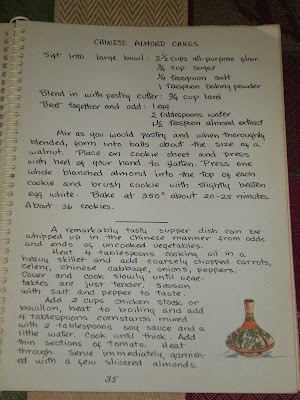 CHINESE ALMOND CAKES
Sift into large bowl: 2½ cups all-purpose flour
¾ cup sugar
¼ teaspoon salt
1 teaspoon baking powder
Blend in with pastry cutter: ¾ cup lard
Beat together and add: 1 egg
2 tablespoons water
1½ teaspoon almond extract
Mix as you would pastry and when thoroughly
blended, form into balls about the size of a
walnut. Place on cookie sheet and press
with heel of your hand to flatten. Press one
whole blanched almond into the top of each
cookie and brush cookie with slightly beaten
egg white. Bake at 350° about 20-25 minutes.
About 36 cookies.
A remarkably tasty supper dish can be
whipped up in the Chinese manner from odds
and ends of uncooked vegetables.
Heat 4 tablespoons cooking oil in a
heavy skillet and add coarsely chopped carrots,
celery, chinese cabbage, onions, peppers.
Cover and cook slowly until vege-
tables are just tender, season
with salt and pepper to taste.
Add 2 cups chicken stock or
bouillon, heat to boiling and add
4 tablespoons cornstarch mixed
with 2 tablespoons soy sauce and a
little water. Cook until thick. Add
thin sections of tomato. Heat
through. Serve immediately, garnish-
ed with a few slivered almonds.
35